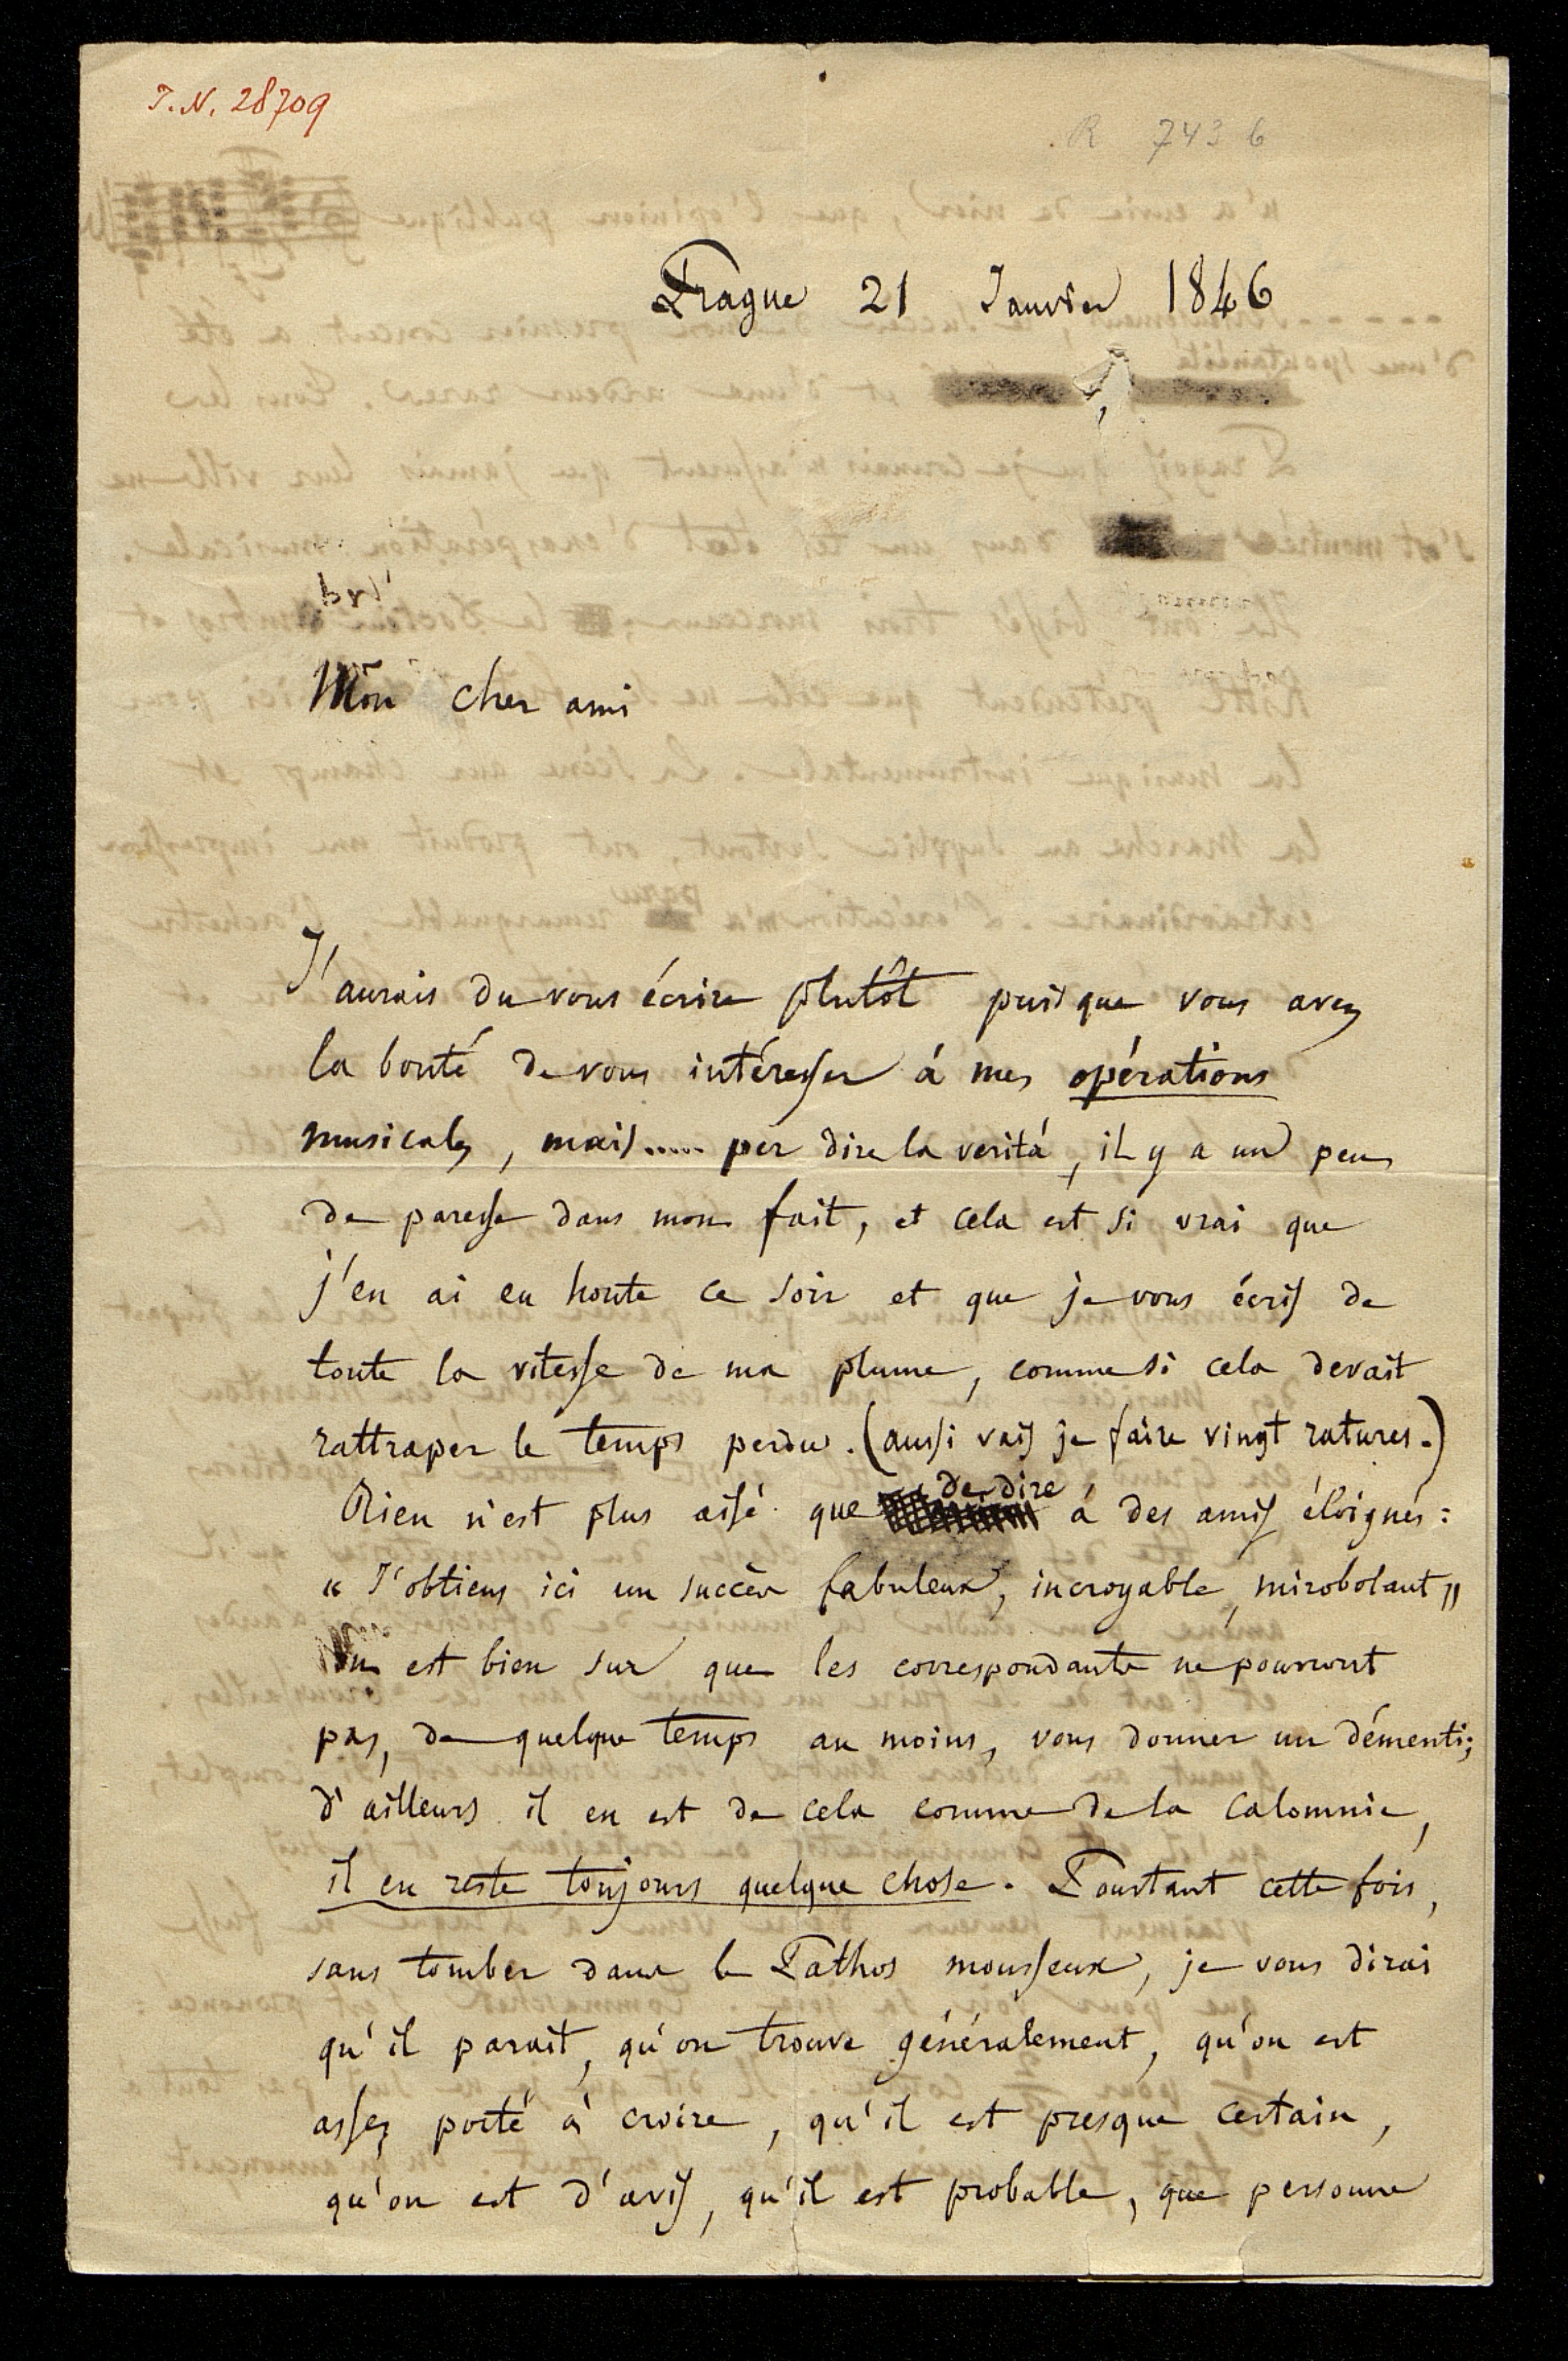 I.N. 28709
R 7436
Prague 21 Janvier 1846
Mon cher ami
J'aurais du vous écrire plutôt puisque vous avez
la bonté de vous intéresser á mes opérations
musicales, mais..... per dire la verità, il y a un peu
de paresse dans mon fait, et cela est si vrai que
j'en ai eu honte ce soir et que je vous écris de
toute la vitesse de ma plume, comme si cela devait
rattraper le temps perdu. (aussi vais je faire vingt ratures.)
Rien n'est plus aisé que de dire á des amis éloignés:
« J'obtiens ici un succès fabuleux, incroyable, mirobolant »
On est bien sur que les correspondants ne pourront
pas, de quelque temps au moins, vous donner un démenti;
d'ailleurs il en est de cela comme de la calomnie,
il en reste toujours quelque chose. Pourtant cette fois,
sans tomber dans le Pathos mousseux, je vous dirai
qu'il parait, qu'on trouve généralement, qu'on est
assez porté à croire, qu'il est presque certain,
qu'on est d'avis, qu'il est probable, que personne